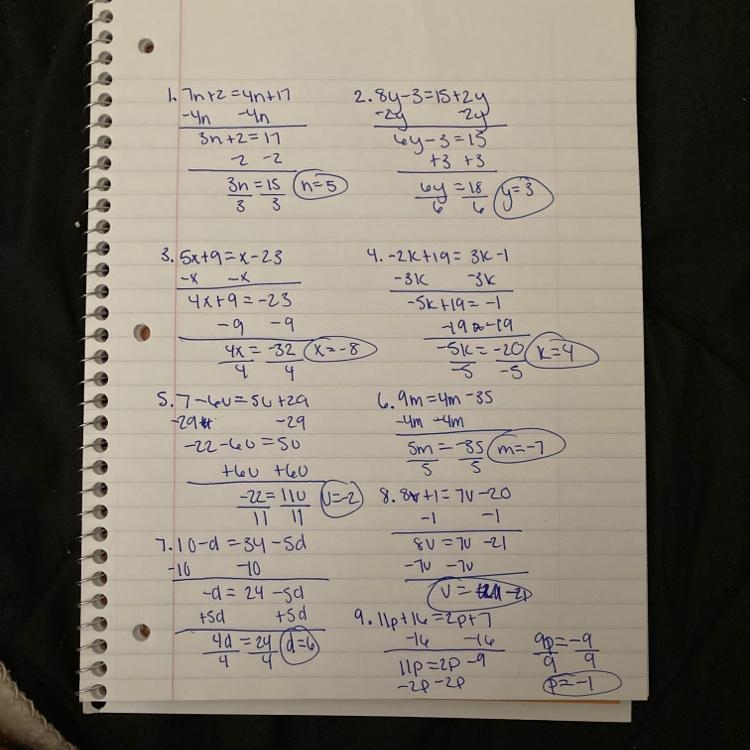 1. 7n+2=4n+17
-4n -4n
3n+2=17
-2 -2
3n=15 n=5
3 3
2. 8y-3=15+2y
-2y -2y
6y-3=15
+3 +3
6y=18 y=3
6 6
3. 5x+9=x-23
-x -x
4x+9=-23
-9 -9
4x=-32 x=-8
4 4
4. -2k+19=3k-1
-3k -3k
-5k+19=-1
-19 -19
-5k=-20 k=4
-5 -5
5. 7-6u=5u+29
-29 -29
-22-6u=5u
+6u +6u
-22=11u u=-2
11 11
6. 9m=4m-35
-4m -4m
5m=-35 m=-7
5 5
7. 10-d=34-5d
-10 -10
-d=24-5d
+5d +5d
4d=24 d=6
4 4
8. 8v+1=7v-20
-1 -1
8v=7v-21
-7v -7v
v=-21
9. 11p+16=2p+7
-16 -16
11p=2p-9
-2p -2p
9p=-9
9 9
p=-1